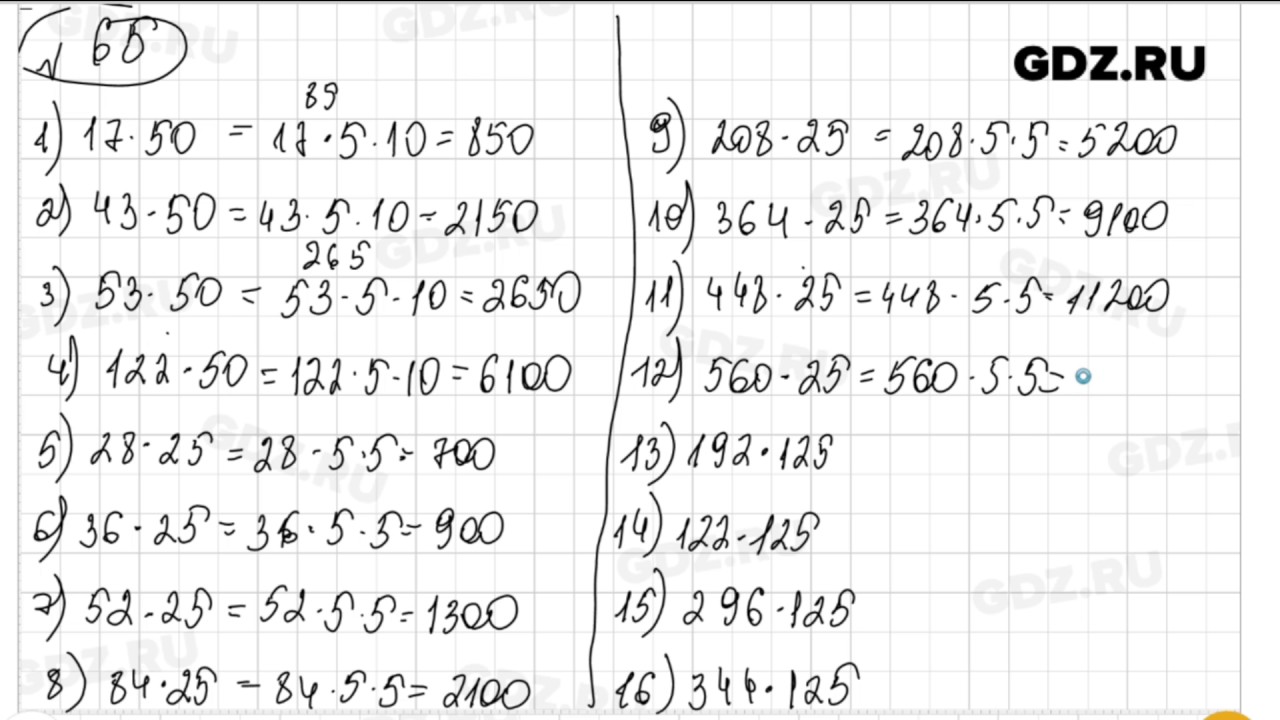 № 65
GDZ.RU
89
1) 17·50 = 17·5·10=850
2) 43·50=43·5·10=2150
265
3) 53·50 = 53·5·10=2650
4) 122·50=122·5·10=6100
5) 28·25=28·5·5=700
6) 36·25=36·5·5=900
7) 52·25=52·5·5=1300
8) 84·25=84·5·5=2100
9) 208·25=208·5·5=5200
10) 364·25=364·5·5=9100
11) 448·25=448·5·5=11200
12) 560·25=560·5·5=
13) 192·125
14) 122·125
15) 296·125
16) 344·125